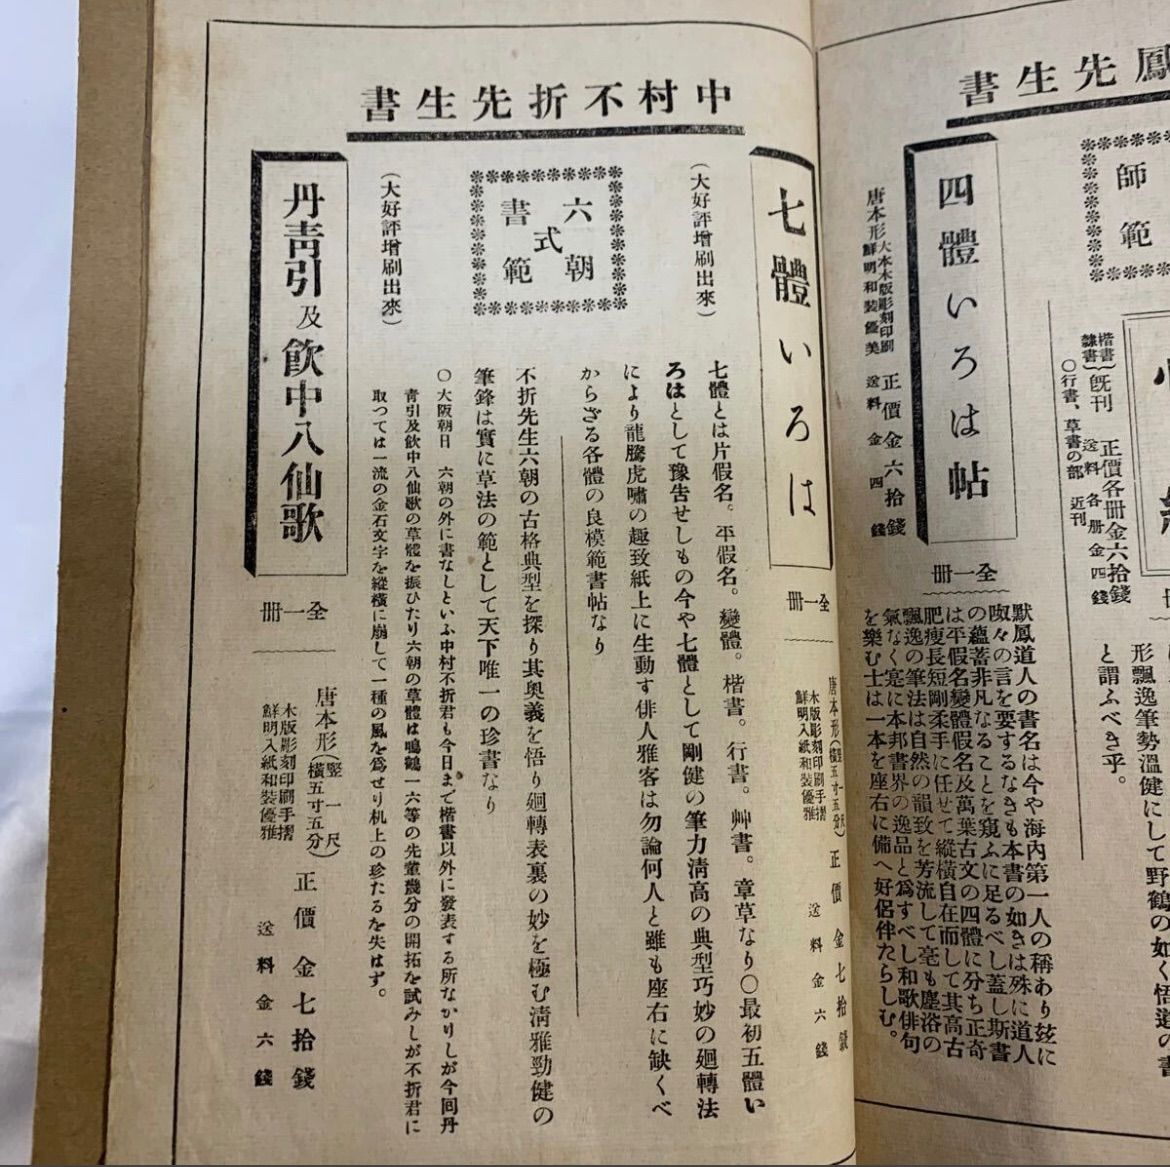 鳳先生書
師範
楷書
隸書
既刊
正價各册金六拾錢
送料各册金四錢
〇行書、草書の部 近刊
形飄逸筆勢溫健にして野鶴の如く悟道の書
と謂ふべき乎。
四體いろは帖
全一册
唐本形
大本木版彫刻印刷
鮮明和裝優美
正價金六拾錢
送料金四錢
默鳳道人の書名は今や海內第一人の稱あり玆に
呶々の言を要するなきも本書の如きは殊に道人
の蘊蓄非凡なることを窺ふに足るべし蓋し斯書
は平假名變體假名及萬葉古文の四體に分ち正奇
肥瘦長短剛柔手に任せて縱橫自在而して其高古
飄逸の筆法は自然の韻致を芳流して毫も塵浴の
氣なく寔に本邦書界の逸品と爲すべし和歌俳句
を樂む士は一本を座右に備へ好侶伴たらしむ。
中村不折先生書
七體いろは
全一册
唐本形(竪一尺橫五寸五分)
木版彫刻印刷手摺
鮮明入紙和裝優雅
正價金七拾錢
送料金六錢
(大好評增刷出來)
七體とは片假名。平假名。變體。楷書。行書。艸書。章草なり〇最初五體い
ろはとして豫告せしもの今や七體として剛健の筆力淸高の典型巧妙の廻轉法
により龍騰虎嘯の趣致紙上に生動す俳人雅客は勿論何人と雖も座右に缺くべ
からざる各體の良模範書帖なり
六朝
式
書範
不折先生六朝の古格典型を探り其奧義を悟り廻轉表裏の妙を極む淸雅勁健の
筆鋒は實に草法の範として天下唯一の珍書なり
〇大阪朝日 六朝の外に書なしといふ中村不折君も今日まで楷書以外に發表する所なかりしが今囘丹
靑引及飮中八仙歌の草體を振ひたり六朝の草體は鳴鶴一六等の先輩幾分の開拓を試みしが不折君に
取つては一流の金石文字を縱橫に崩して一種の風を爲せり机上の珍たるを失はず。
(大好評增刷出來)
丹靑引及飮中八仙歌
全一册
唐本形(竪一尺橫五寸五分)
木版彫刻印刷手摺
鮮明入紙和裝優雅
正價金七拾錢
送料金六錢